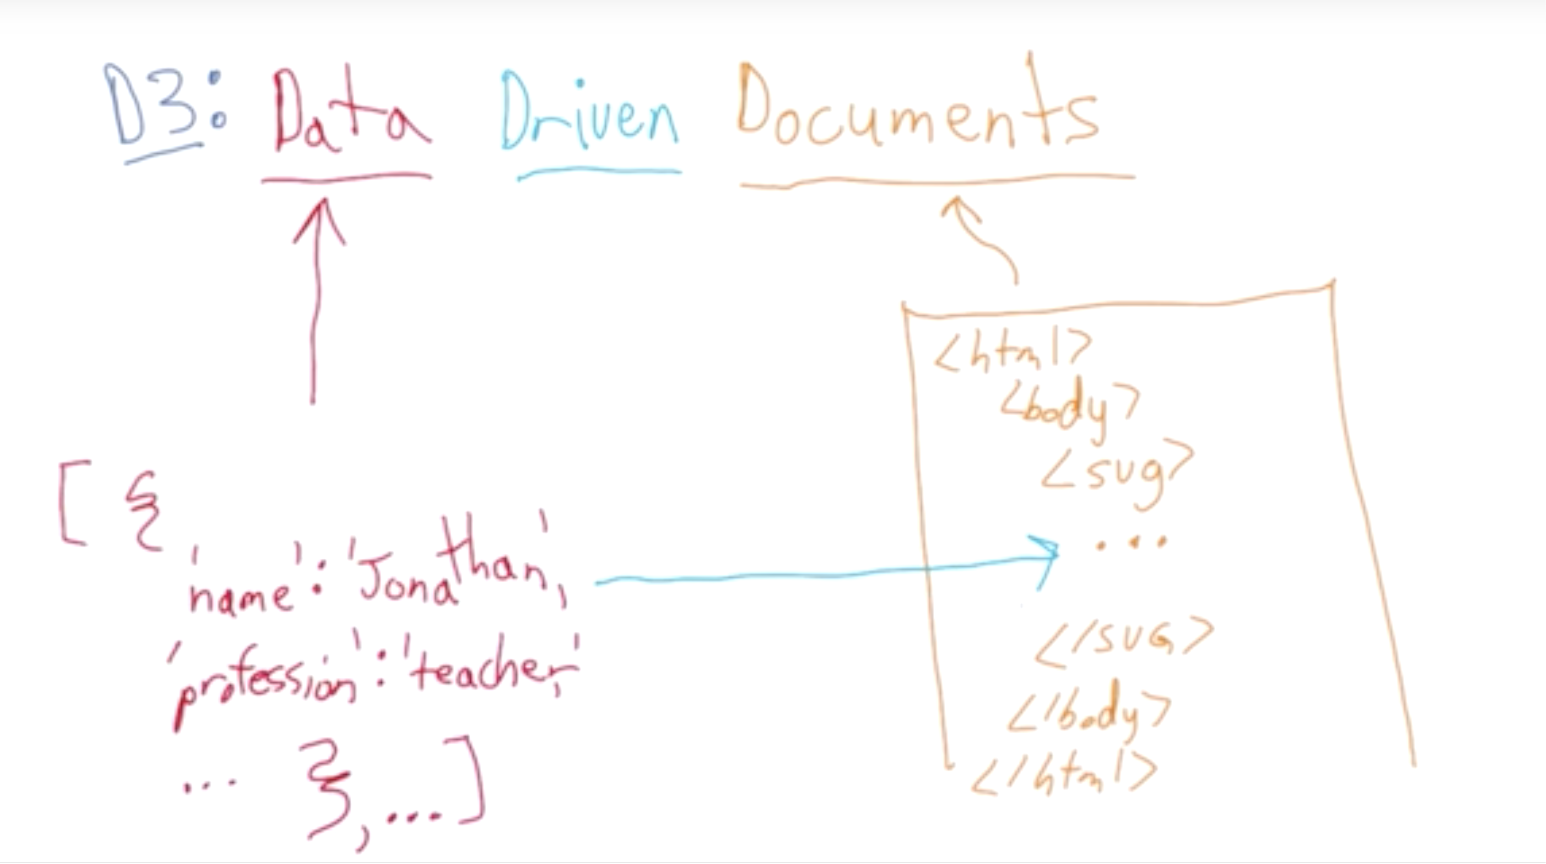 D3: Data Driven Documents
[ {
'name': 'Jonathan',
'profession': 'teacher',
... }, ... ]
<html>
<body>
<svg>
...
</svG>
</body>
</html>